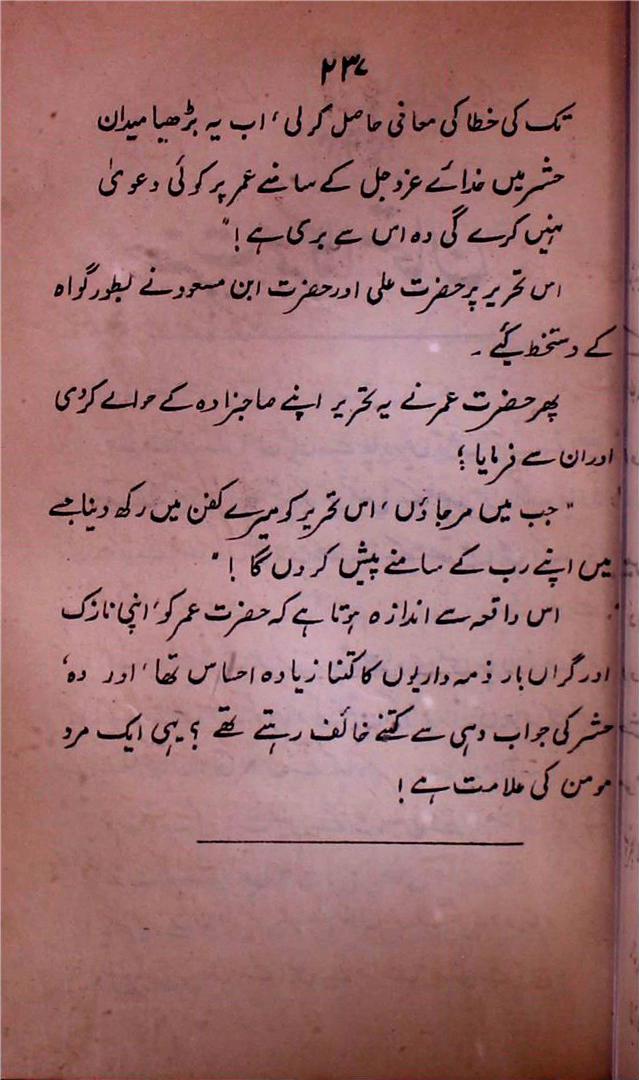 ۲۳۷
تک کی خطا کی معافی حاصل کرلی، اب یہ بڑھیا میدان
حشر میں خدائے عزوجل کے سامنے عمر پر کوئی دعویٰ
نہیں کرے گی وہ اس سے بری ہے!"
اس تحریر پر حضرت علی اور حضرت ابن مسعود نے بطور گواہ
کے دستخط کیے ۔
پھر حضرت عمر نے یہ تحریر اپنے صاحبزادہ کے حوالے کردی
اور ان سے فرمایا؛
"جب میں مرجاؤں، اس تحریر کو میرے کفن میں رکھ دینا جسے
میں اپنے رب کے سامنے پیش کردوں گا!"
اس واقعہ سے اندازہ ہوتا ہے کہ حضرت عمر کو، اپنی نازک
اور گراں بار ذمہ داریوں کا کتنا زیادہ احساس تھا، اور وہ،
حشر کی جواب دہی سے کتنے خائف رہتے تھے؟ یہی ایک مرد
مومن کی علامت ہے!